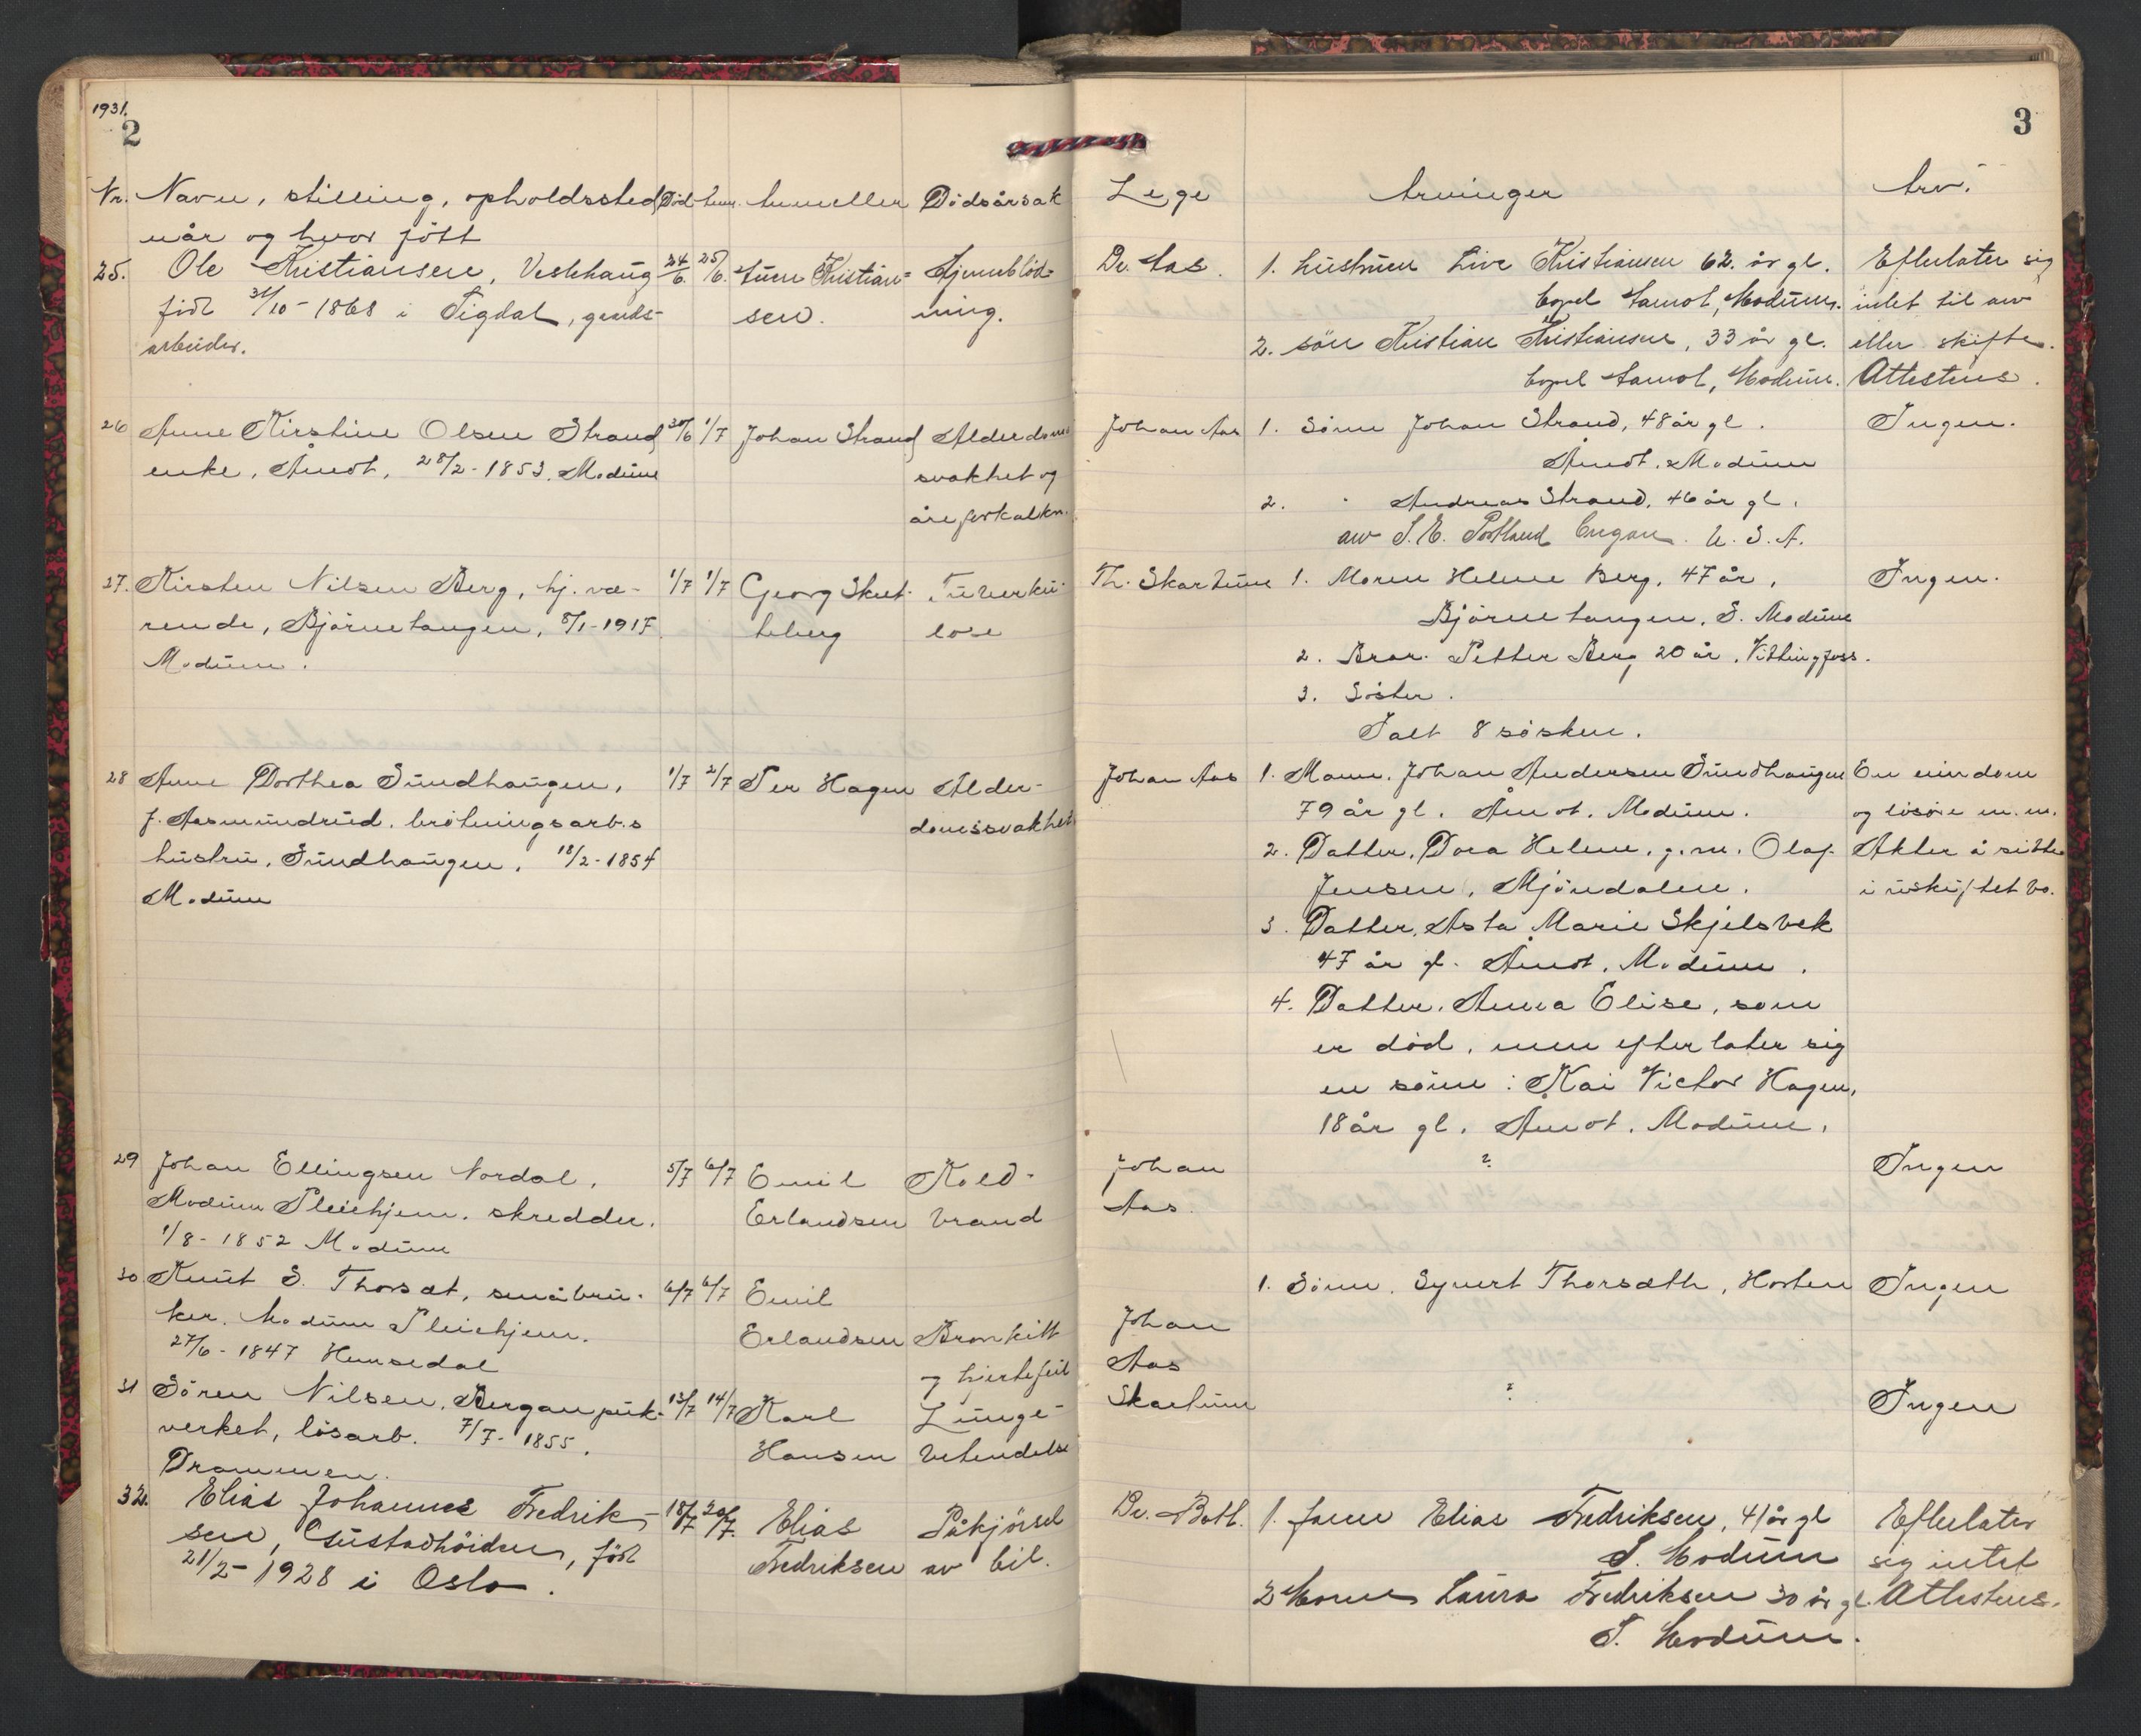 1931.
2
Nr. Navn, stilling, opholdssted Död Anm. Anmelder Dödsårsak
når og hvor født
25. Ole Kristiansen, Vestehaug 24/6. 25/6. Kristian- Hjerneblöd-
född 31/10-1868 i Sigdal, gaards- sen. ning.
arbeider.
26 Anne Kirstine Olsen Strand 30/6 1/7 Johan Strand Alderdoms
enke, Åmot, 28/2-1853. Modum svakhet og
åreforkalkn.
27. Kirsten Nilsen Berg, hj. væ- 1/7 1/7 Georg Skut- Tuberku-
rende, Bjørnetangen, 8/1-1917. teberg lose
Modum.
28 Anne Dorthea Sundhaugen, 1/7 2/7 Per Hagen Alder-
f. Aasmundrud. brötningsarb.s domssvakhet
hustru, Sundhaugen, 18/2-1854
Modum
29 Johan Ellingsen Nordal, 5/7 6/7 Emil Kold-
Modum Pleiehjem. skredder. Erlandsen brand
1/8-1852 Modum
30 Knut S. Thorsæt, småbru- 6/7 6/7 Emil
ker. Modum Pleiehjem. Erlandsen Bronkitt
27/6-1847 Hemsedal og hjertefeil
31 Sören Nilsen, Bergan puk- 13/7 14/7 Karl Lunge-
verket, lösarb. 7/7-1855. Hansen betendelse
Drammen.
32. Elias Johannes Fredrik- 18/7 20/7. Elias Påkjörsel
sen, Gustadhöiden, född Fredriksen av bil.
21/2-1928 i Oslo.
3
Lege Arvinger Arv.
Dr. Aas. 1. Hustruen Live Kristiansen 62. år gl. Efterlater sig
bopel Åmot, Modum. intet til arv
2. sön Kristian Kristiansen, 33 år gl. eller skifte.
bopel Åmot, Modum. Attesteres.
Johan Aas 1. Sönn Johan Strand, 48 år gl. Ingen.
Åmot. Modum
2. " Andreas Strand, 46 år gl.
S. E. Portland U. S. A.
Th. Skartum 1. Moren Helene Berg, 47 år, Ingen.
Bjørnetangen, S. Modum
2. Bror. Petter Berg 20 år, Vittingfoss.
3. Söster.
Ialt 8 søsken.
Johan Aas 1. Mann. Johan Andersen Sundhaugen En eiendom
79 år gl. Åmot. Modum. og lösöre m. m.
2. Datter. Dora Helene, g. m. Olaf Akter å sitte
Jensen, Mjöndalen. i uskiftet bo.
3. Datter, Asta Marie Skjelsbek
47 år gl. Åmot. Modum.
4. Datter. Anna Elise, som
er död, men efterlater sig
en sönn: Kai Victor Hagen,
18 år gl. Åmot. Modum.
Johan ? Ingen
Aas.
1. Sönn. Syvert Thorsæth, Horten Ingen
Johan
Aas
Skartum ? Ingen
Dr. Both. 1. faren Elias Fredriksen, 41 år gl Efterlater
S. Modum sig intet
2 Moren Laura Fredriksen 30 år gl. Attesteres.
S. Modum.